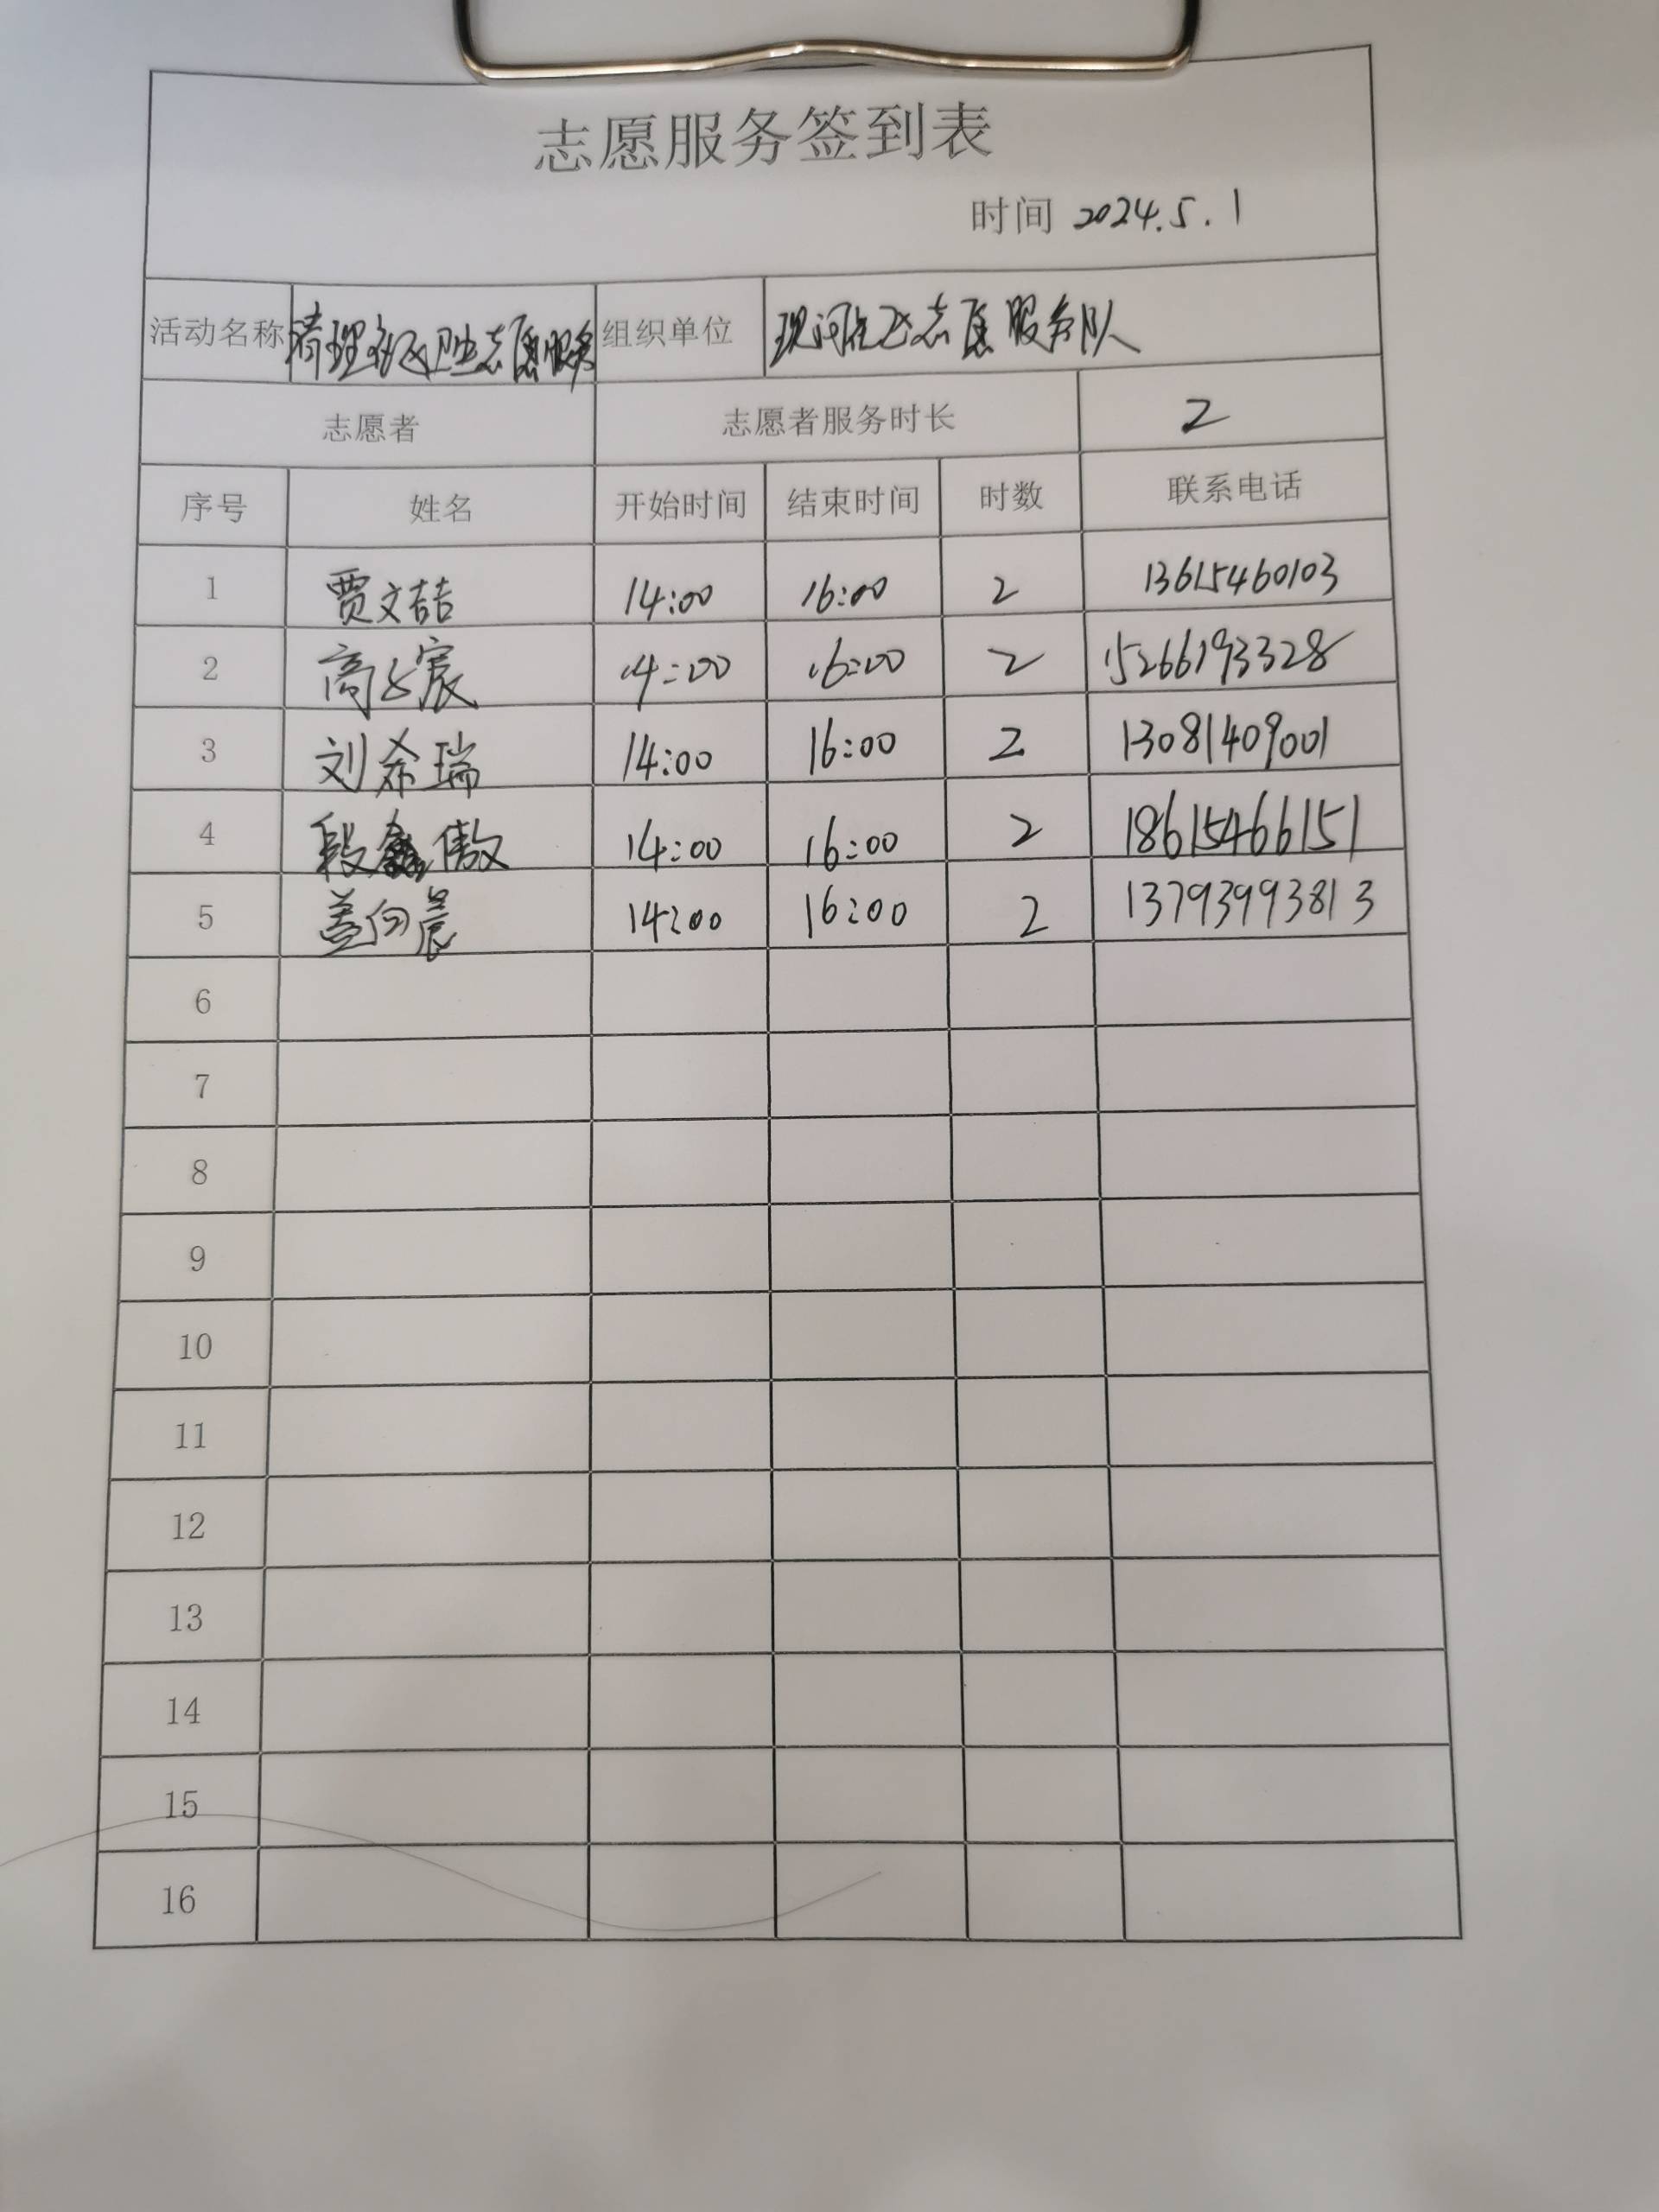 志愿服务签到表
时间 2024.5.1
活动名称 清理社区卫生志愿服务 组织单位 志愿服务队
志愿者 志愿者服务时长 2
序号 姓名 开始时间 结束时间 时数 联系电话
1 贾文喆 14:00 16:00 2 13615460103
2 高宸 14:00 16:00 2 15266193328
3 刘希瑞 14:00 16:00 2 13081409001
4 段鑫傲 14:00 16:00 2 18615466151
5 盖向晨 14:00 16:00 2 13793993813
6
7
8
9
10
11
12
13
14
15
16